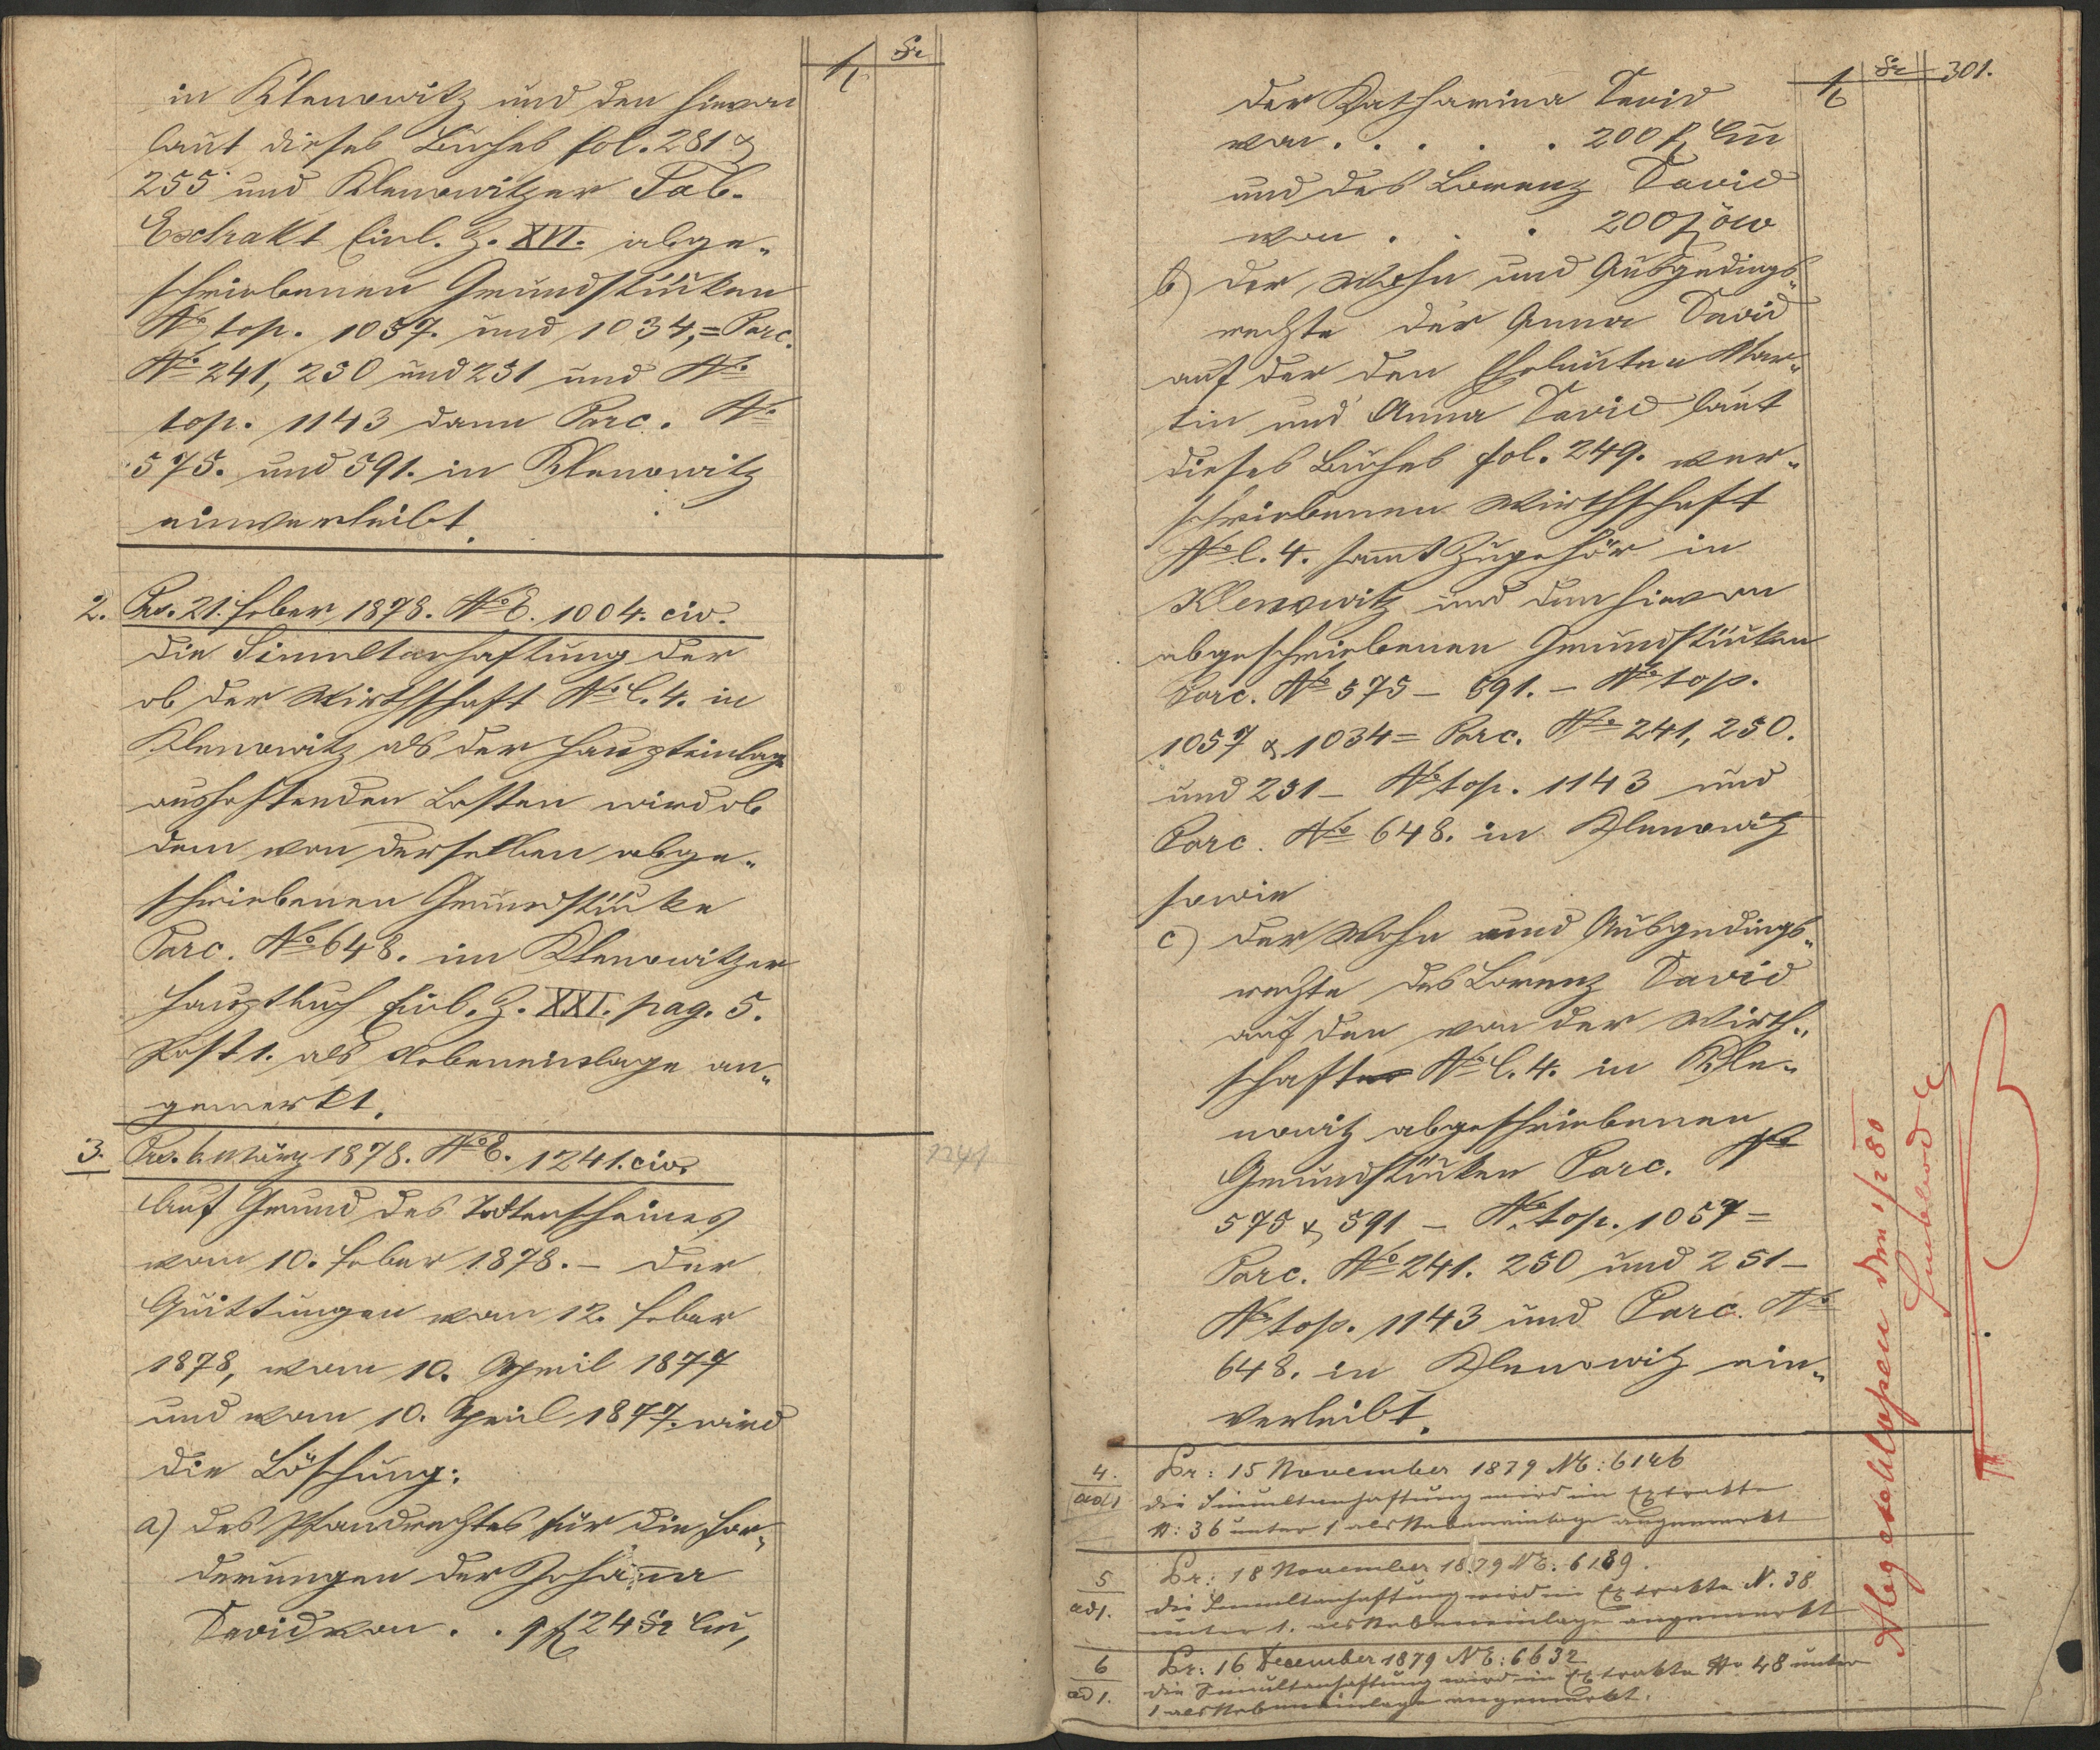 fl kr
in Klenowitz und den hievon
laut dieses Buches fol. 281 &
255 und Klenowitzer Tab.
Extrakt Einl. Z. XVI. abge„
schriebenen Grundstücken
No top. 1057. und 1034, = Parc.
No 241, 250 und 251 und No
top. 1143 dann Parc. No
575. und 591. in Klenowitz
einverleibt.
2. Prs. 21. Feber 1878. No E. 1004. civ.
Die Simultanhaftung der
ob der Wirthschaft No C. 4. in
Klenowitz als der Haupteinlage
aushaftenden Lasten wird ob
dem von derselben abge„
schriebenen Grundstücke
Parc. No 648. im Klenowitzer
Hauptbuch Einl. Z. XXI. pag. 5.
Post 1. als Nebeneinlage an„
gemerkt.
3. Prs. März 1878. No E. 1241. civ.
1241
Auf Grund des Todtenscheines
vom 10. Feber 1878. – der
Quittungen vom 12. Feber
1878, vom 10. April 1877
und vom 10. April 1877. wird
die Löschung:
a) des Pfandrechtes für die For„
derungen der Johanna
David von . . 9 fl 24 kr Cm,
fl kr 301.
der Katharina David
von . . . . . 200 fl Cm
und des Lorenz David
von . . . 200 fl öw
b) der Wohn und Ausgedings„
rechte der Anna David
auf der den Eheleuten Mar„
tin und Anna David laut
dieses Buches fol. 249. ver„
schriebenen Wirthschaft
No C. 4. sammt Zugehör in
Klenowitz und den hievon
abgeschriebenen Grundstücken
Parc. No 575 – 591. – No top.
1057 & 1034 = Parc. No 241, 250.
und 251 – No top. 1143 und
Parc. No 648. in Klenowitz
sowie
c) der Wohn und Ausgedings„
rechte des Lorenz David
auf den von der Wirth„
schaft No C. 4. in Kle„
nowitz abgeschriebenen
Grundstücken Parc. No
575 & 591 – No top. 1057 =
Parc. No 241. 250 und 251 –
No top. 1143 und Parc. No
648. in Klenowitz ein„
verleibt.
4. ad 1 Pr: 15 November 1879 NE: 6146
die Simultanhaftung wird im Extrakte
N: 36 unter 1 als Nebeneinlage angemerkt
5 ad 1. Pr: 18 November 1879 NE: 6189.
die Simultanhaftung wird im Extrakte N. 38
unter 1. als Nebeneinlage angemerkt
6 ad 1. Pr: 16 Dezember 1879 NE: 6632
die Simultanhaftung wird im Extrakte No 48 unter
1 als Nebeneinlage angemerkt.
Abgeschlossen den 1/2 80